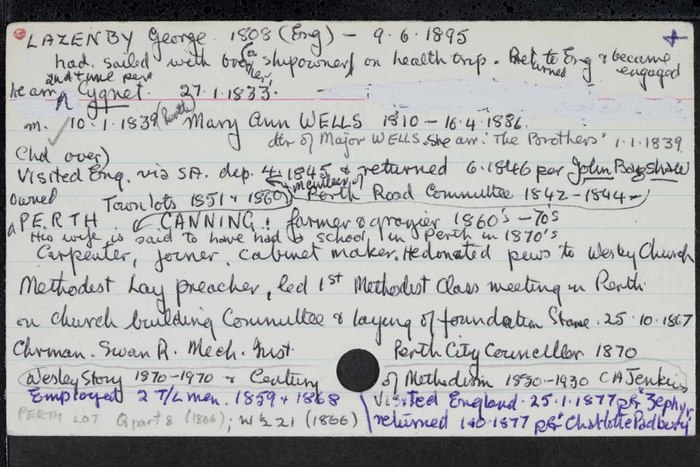 LAZENBY George 1808 (Eng) - 9.6.1895
had sailed with (a shipowner) on health trip. Returned to Eng & became engaged
2nd time per
he arr. Cygnet. 27.1.1833.
m. 10.1.1839 (Perth) Mary Ann WELLS 1810 - 16.4.1886.
dtr of Major WELLS. She arr. 'The Brothers' 1.1.1839.
Chd over)
Visited Eng. via SA. dep. 4.1845 & returned 6.1846 per John Bagshaw
Owned Town lots 1851 & 1860 member of Perth Road Committee 1842-1844
PERTH. CANNING: farmer & grazier 1860's-70s
His wife is said to have had a school in Perth in 1870's
Carpenter, joiner, cabinet maker. He donated pews to Wesley Church
Methodist Lay preacher, led 1st Methodist Class meeting in Perth
on church building Committee & laying of foundation Stone. 25.10.1867
Chrman. Swan R. Mech. Inst. Perth City Councillor 1870
Wesley Story 1870-1970 & Century of Methodism 1830-1930 C A Jenkins
Employed 2 T/L men. 1859 & 1868
Visited England. 25.1.1877 per Zephyr
PERTH LOT Q part 8 (1866); W 1/2 21 (1866)
returned 1.10.1877 per Charlotte Padbury